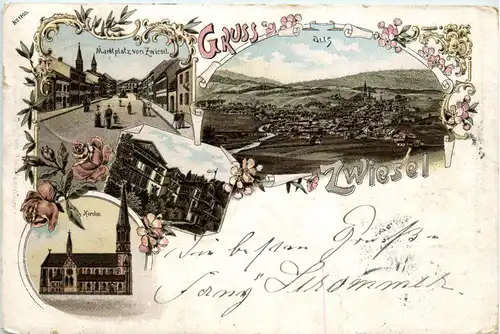 No 1900.
Marktplatz von Zwiesel.
Gruss
aus
Zwiesel
Kirche
Die besten Grüße